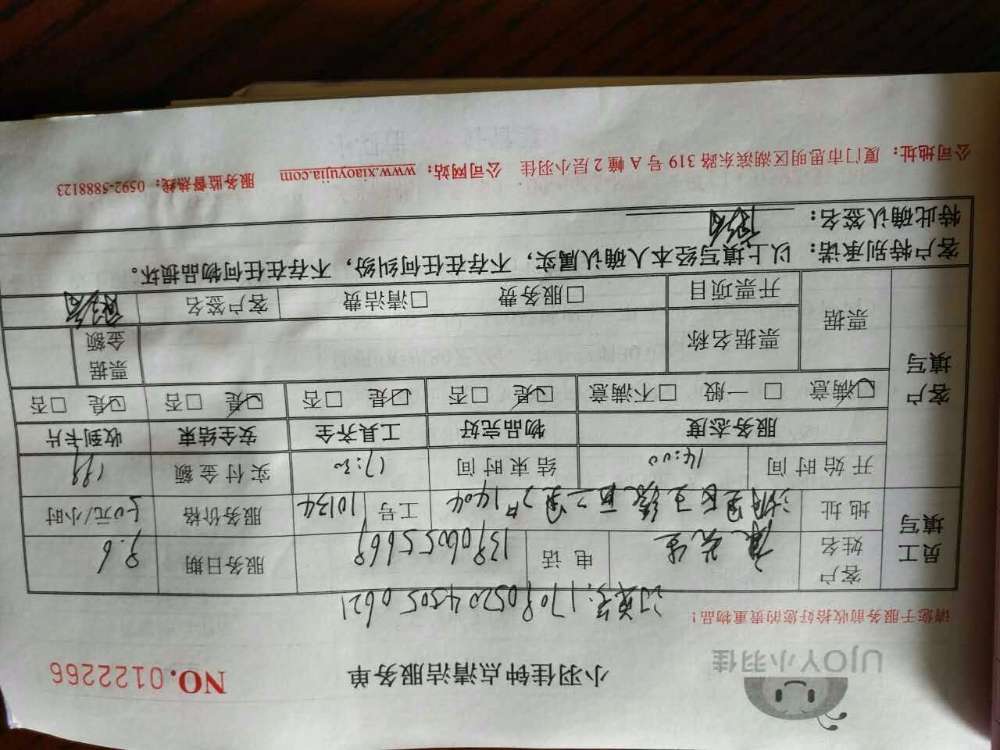 UJOY小羽佳
小羽佳钟点清洁服务单
NO.0122266
请您于服务前收拾好您的贵重物品！
订单号:1709052045050621
员工填写
客户姓名
先生
电话
13906055669
服务日期
9.6
地址
1404
工号
10134
服务价格
30元/小时
开始时间
14:00
结束时间
17:30
实付金额
客户填写
服务态度
物品完好
工具齐全
安全结束
收到卡片
满意 一般 不满意
是 否
是 否
是 否
是 否
票据
票据名称
票据金额
开票项目
服务费 清洁费
客户签名
客户特别承诺：以上填写经本人确认属实，不存在任何纠纷，不存在任何物品损坏。
特此确认签名：
公司地址：厦门市思明区湖滨东路319号A幢2层小羽佳 公司网站：www.xiaoyujia.com 服务监督热线：0592-5888123